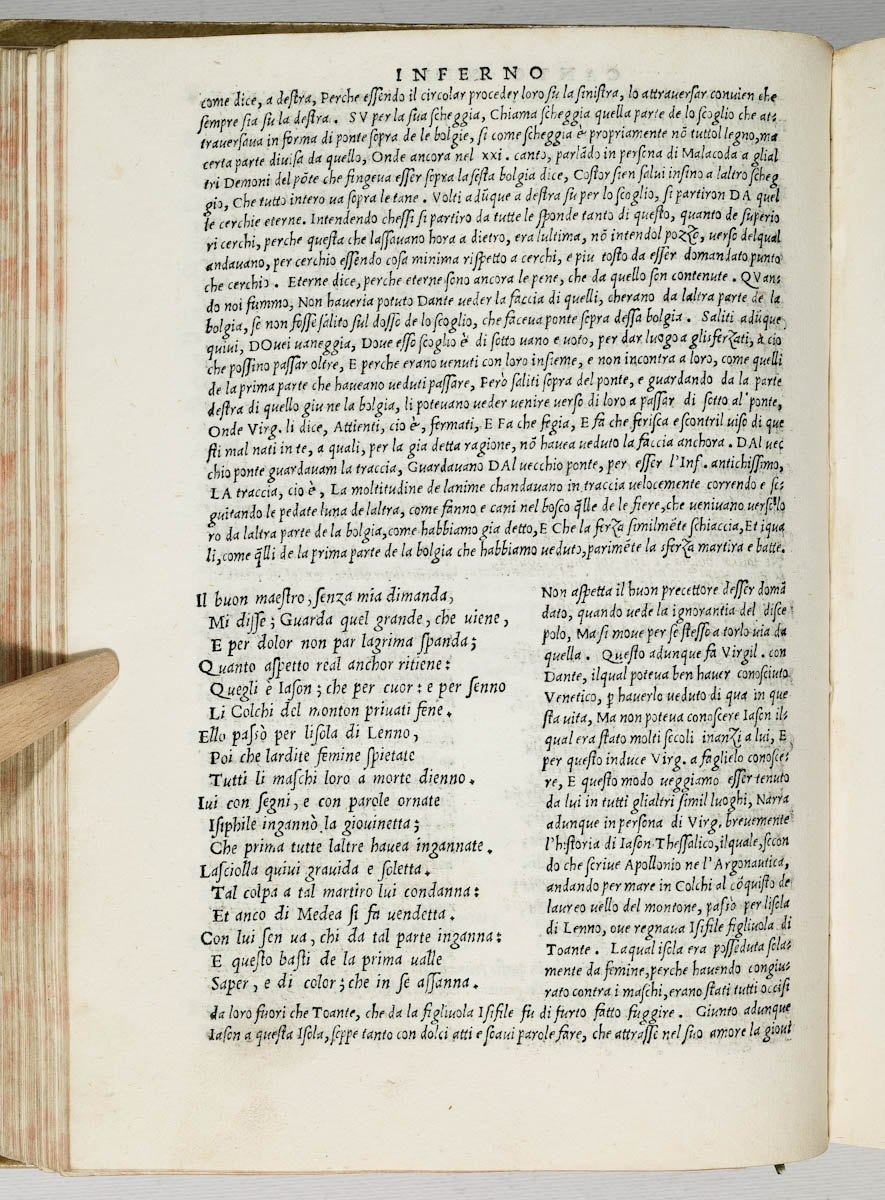 INFERNO
come dice, a destra, Perche essendo il circolar proceder loro su la sinistra, lo attraversar convien che
sempre sia su la destra. SV per la sua scheggia, Chiama scheggia quella parte de lo scoglio che at-
traversava in forma di ponte sopra de le bolgie, si come scheggia è propriamente nõ tuttol legno, ma
certa parte divisa da quello, Onde ancora nel xxi. canto, parlãdo in persona di Malacoda a glial
tri Demoni del põte che fingeva esser sopra la sesta bolgia dice, Costor sien salui insino a laltro scheg
gio, Che tutto intero va sopra le tane. Volti adũque a destra su per lo scoglio, si partiron DA quel
le cerchie eterne. Intendendo chessi si partiro da tutte le sponde tanto di questo, quanto de superio
ri cerchi, perche questa che lassavano hora a dietro, era lultima, nõ intendol pozzo, verso del qual
andavano, per cerchio essendo cosa minima rispetto a cerchi, e piu tosto da esser domandato punto
che cerchio. Eterne dice, perche eterne sono ancora le pene, che da quello son contenute. QVan-
do noi fummo, Non haveria potuto Dante veder la faccia di quelli, cherano da laltra parte de la
bolgia, se non fosse salito sul dosso de lo scoglio, che faceva ponte sopra dessa bolgia. Saliti adũque
quivi, DOvei vaneggia, Dove esso scoglio è di sotto vano e voto, per dar luogo a gli sferzati, a ciò
che possino passar oltre, E perche erano venuti con loro insieme, e non incontra a loro, come quelli
de la prima parte che haveano veduti passare, Però saliti sopra del ponte, e guardando da la parte
destra di quello giu ne la bolgia, li potevano veder venire verso di loro a passar di sotto al ponte,
Onde Virg. li dice, Attienti, cio è, fermati, E Fa che fegia, E fà che ferisca e scontril viso di que
sti mal nati in te, a quali, per la gia detta ragione, nõ havea veduto la faccia anchora. DAl vec
chio ponte guardavam la traccia, Guardavano DAl vecchio ponte, per esser l'Inf. antichissimo,
LA traccia, cio è, La moltitudine de lanime chandavano in traccia velocemente correndo e se-
guitando le pedate luna de laltra, come fanno e cani nel bosco q̃lle de le fiere, che venivano verso lo
ro da laltra parte de la bolgia, come habbiamo gia detto, E Che la ferza similmẽte schiaccia, Et iqua
li, come q̃lli de la prima parte de la bolgia che habbiamo veduto, parimẽte la sferza martira e batte.
Il buon maestro, senza mia dimanda,
Mi disse; Guarda quel grande, che viene,
E per dolor non par lagrima spanda;
Quanto aspetto real anchor ritiene:
Quegli è Iason; che per cuor: e per senno
Li Colchi del monton privati fene.
Ello passò per lisola di Lenno,
Poi che lardite femine spietate
Tutti li maschi loro a morte dienno.
Iui con segni, e con parole ornate
Isiphile ingannò la giovinetta;
Che prima tutte laltre havea ingannate.
Lasciolla quivi gravida e soletta.
Tal colpa a tal martiro lui condanna:
Et anco di Medea si fa vendetta.
Con lui sen va, chi da tal parte inganna:
E questo basti de la prima valle
Saper, e di color; che in se assanna.
Non aspetta il buon precettore desser domã
dato, quando vede la ignorantia del disce
polo, Ma si move per se stesso a torlo via da
quella. Questo adunque fà Virgil. con
Dante, ilqual poteva ben haver conosciuto
Venetico, ꝑ haverlo veduto di qua in que
sta vita, Ma non poteva conoscere Iason il-
qual era stato molti secoli inanzi a lui, E
per questo induce Virg. a faglielo conosce-
re, E questo modo veggiamo esser tenuto
da lui in tutti glialtri simil luoghi, Narra
adunque in persona di Virg. brevemente
l'historia di Iason Thessalico, ilquale, secon
do che scrive Apollonio ne l'Argonautica,
andando per mare in Colchi al cõquisto de
laureo vello del montone, passò per lisola
di Lenno, ove regnava Isifile figliuola di
Toante. Laqual isola era posseduta sola-
mente da femine, perche havendo congiu-
rato contra i maschi, erano stati tutti occisi
da loro fuori che Toante, che da la figliuola Isifile fù di furto fatto fuggire. Giunto adunque
Iason a questa Isola, seppe tanto con dolci atti e soavi parole fare, che attrasse nel suo amore la giovi